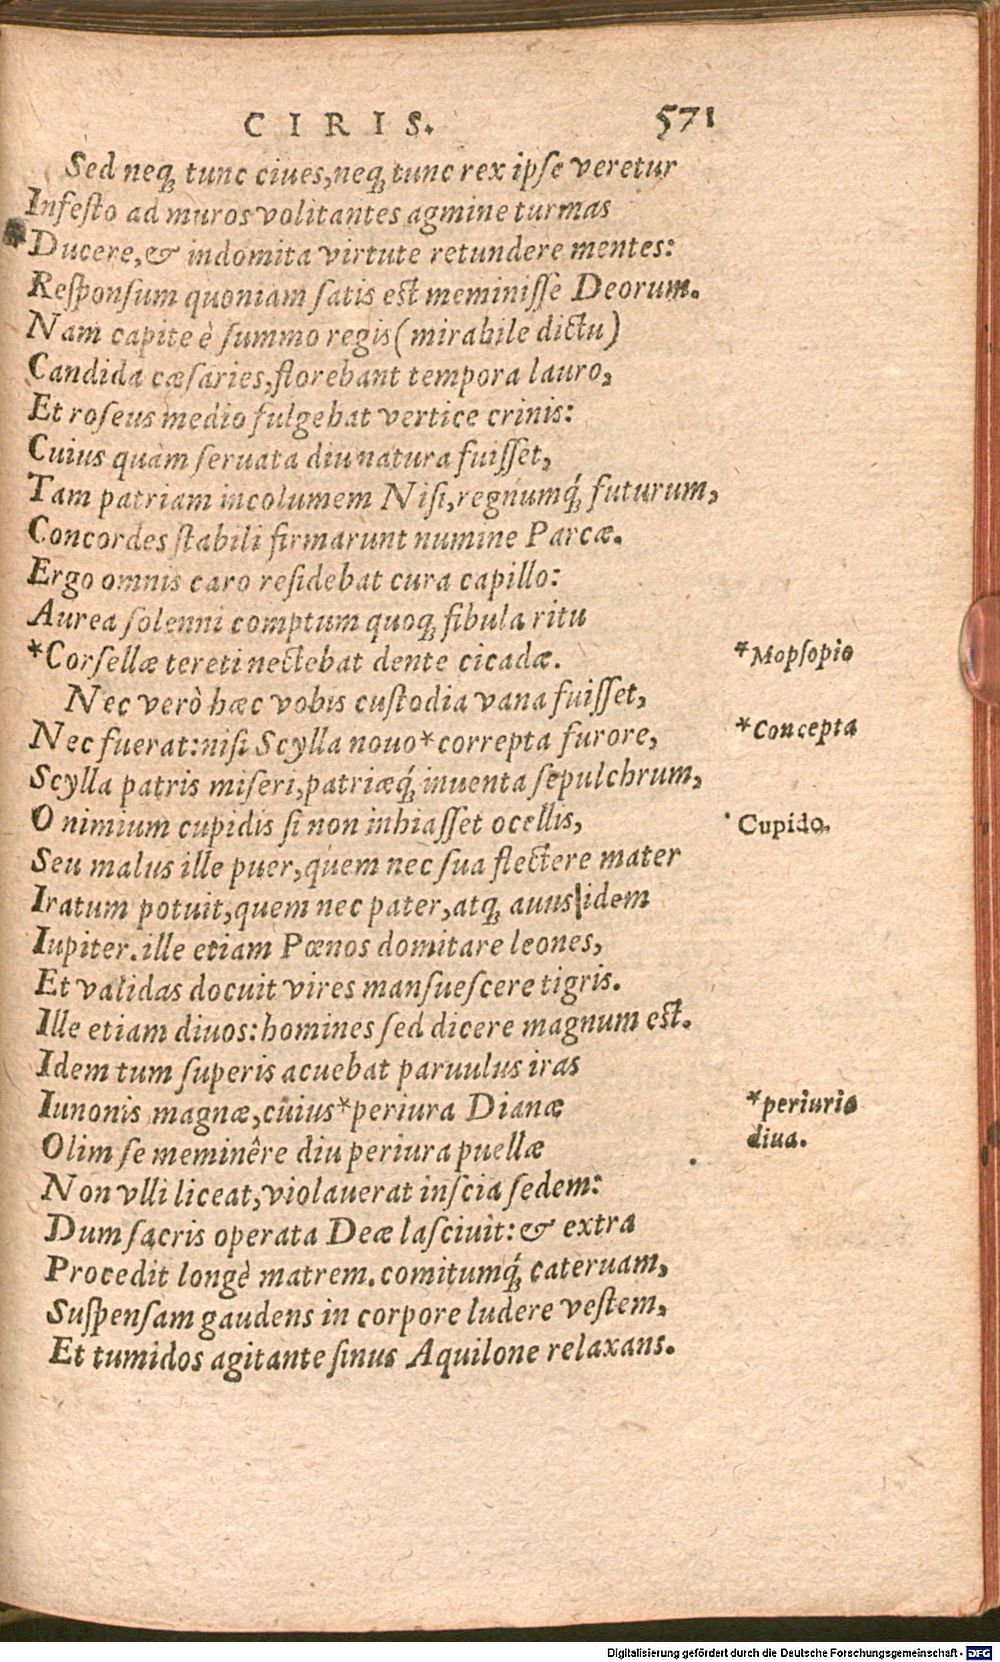 CIRIS. 571
Sed neq; tunc ciues, neq; tunc rex ipſe veretur
Infeſto ad muros volitantes agmine turmas
Ducere, & indomita virtute retundere mentes:
Reſponſum quoniam ſatis eſt meminiſſe Deorum.
Nam capite è ſummo regis (mirabile dictu)
Candida cæſaries, florebant tempora lauro,
Et roſeus medio fulgebat vertice crinis:
Cuius quàm ſeruata diu natura fuiſſet,
Tam patriam incolumem Niſi, regnumq́; futurum,
Concordes ſtabili firmarunt numine Parcæ.
Ergo omnis caro reſidebat cura capillo:
Aurea ſolenni comptum quoq; fibula ritu
*Corſellæ tereti nectebat dente cicadæ. *Mopſopio
Nec verò hæc vobis cuſtodia vana fuiſſet,
Nec fuerat: niſi Scylla nouo *correpta furore, *Concepta
Scylla patris miſeri, patriæq́; inuenta ſepulchrum,
O nimium cupidis ſi non inhiaſſet ocellis, Cupido.
Seu malus ille puer, quem nec ſua flectere mater
Iratum potuit, quem nec pater, atq; auus idem
Iupiter. ille etiam Pœnos domitare leones,
Et validas docuit vires manſueſcere tigris.
Ille etiam diuos: homines ſed dicere magnum eſt.
Idem tum ſuperis acuebat paruulus iras
Iunonis magnæ, cuius *periura Dianæ *periuria
Olim ſe meminêre diu periura puellæ diua.
Non vlli liceat, violauerat inſcia ſedem:
Dum ſacris operata Deæ laſciuit: & extra
Procedit longè matrem. comitumq́; cateruam,
Suſpenſam gaudens in corpore ludere veſtem,
Et tumidos agitante ſinus Aquilone relaxans.
Digitalisierung gefördert durch die Deutsche Forschungsgemeinschaft - DFG